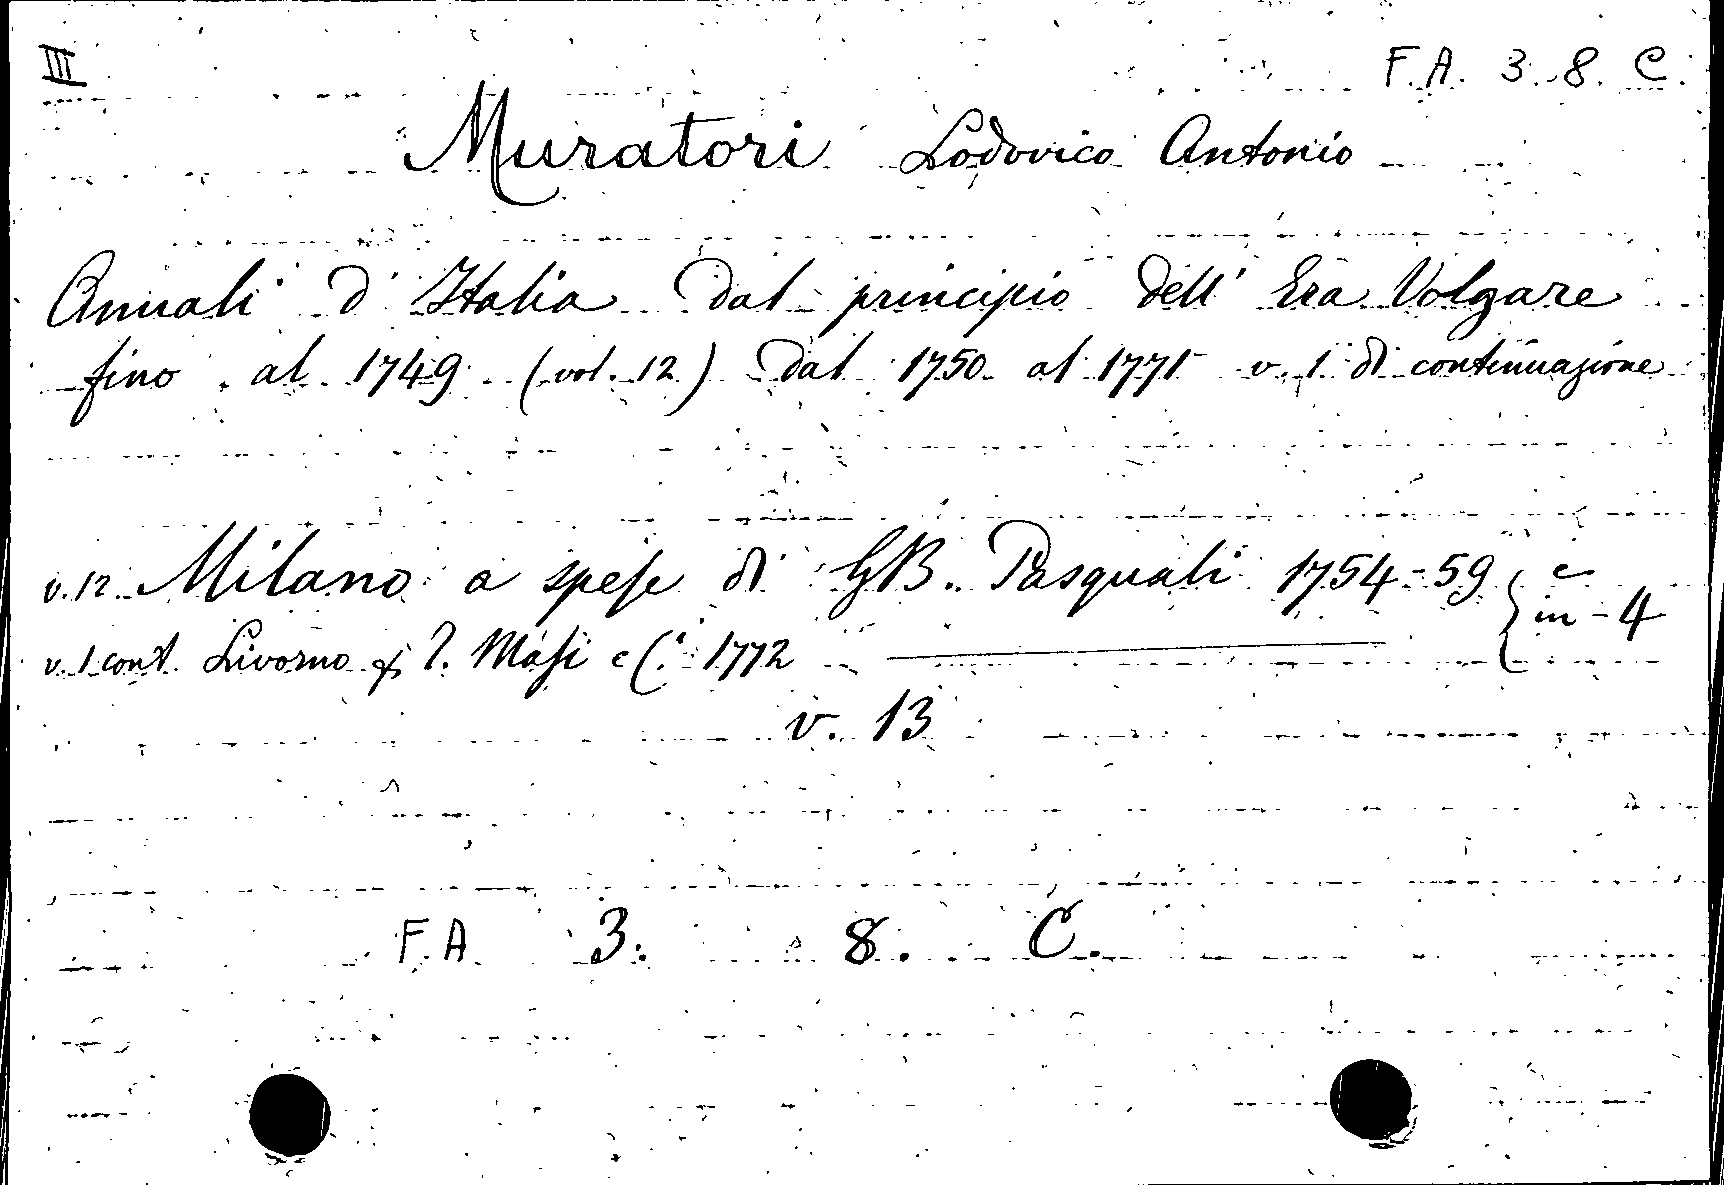 III
F. A. 3. 8. C.
Muratori Lodovico Antonio
Annali d' Italia dal principio dell' Era Volgare
fino al 1749 (vol. 12) dal 1750 al 1771 v. 1 di continuazione
v. 12 Milano a spese di GB. Pasquali 1754-59 e
in-4
v. 1 cont. Livorno Masi e C.i 1772
v. 13
F. A 3. 8. C.